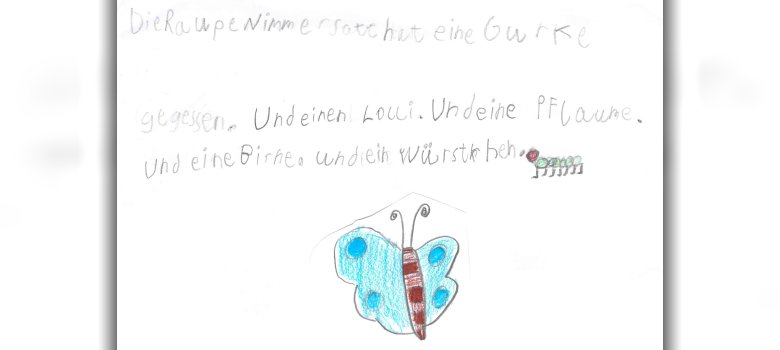 DieRaupeNimmersatt hat eine Gurke
gegessen. Undeinen Loui. Undeine Pflaume.
und eine Birne. undein Würstkhen.